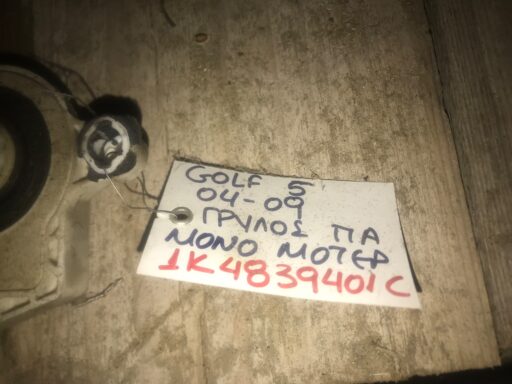 GOLF 5
04-09
ΓΡΥΛΟΣ ΠΑ
ΜΟΝΟ ΜΟΤΕΡ
1K4839401C